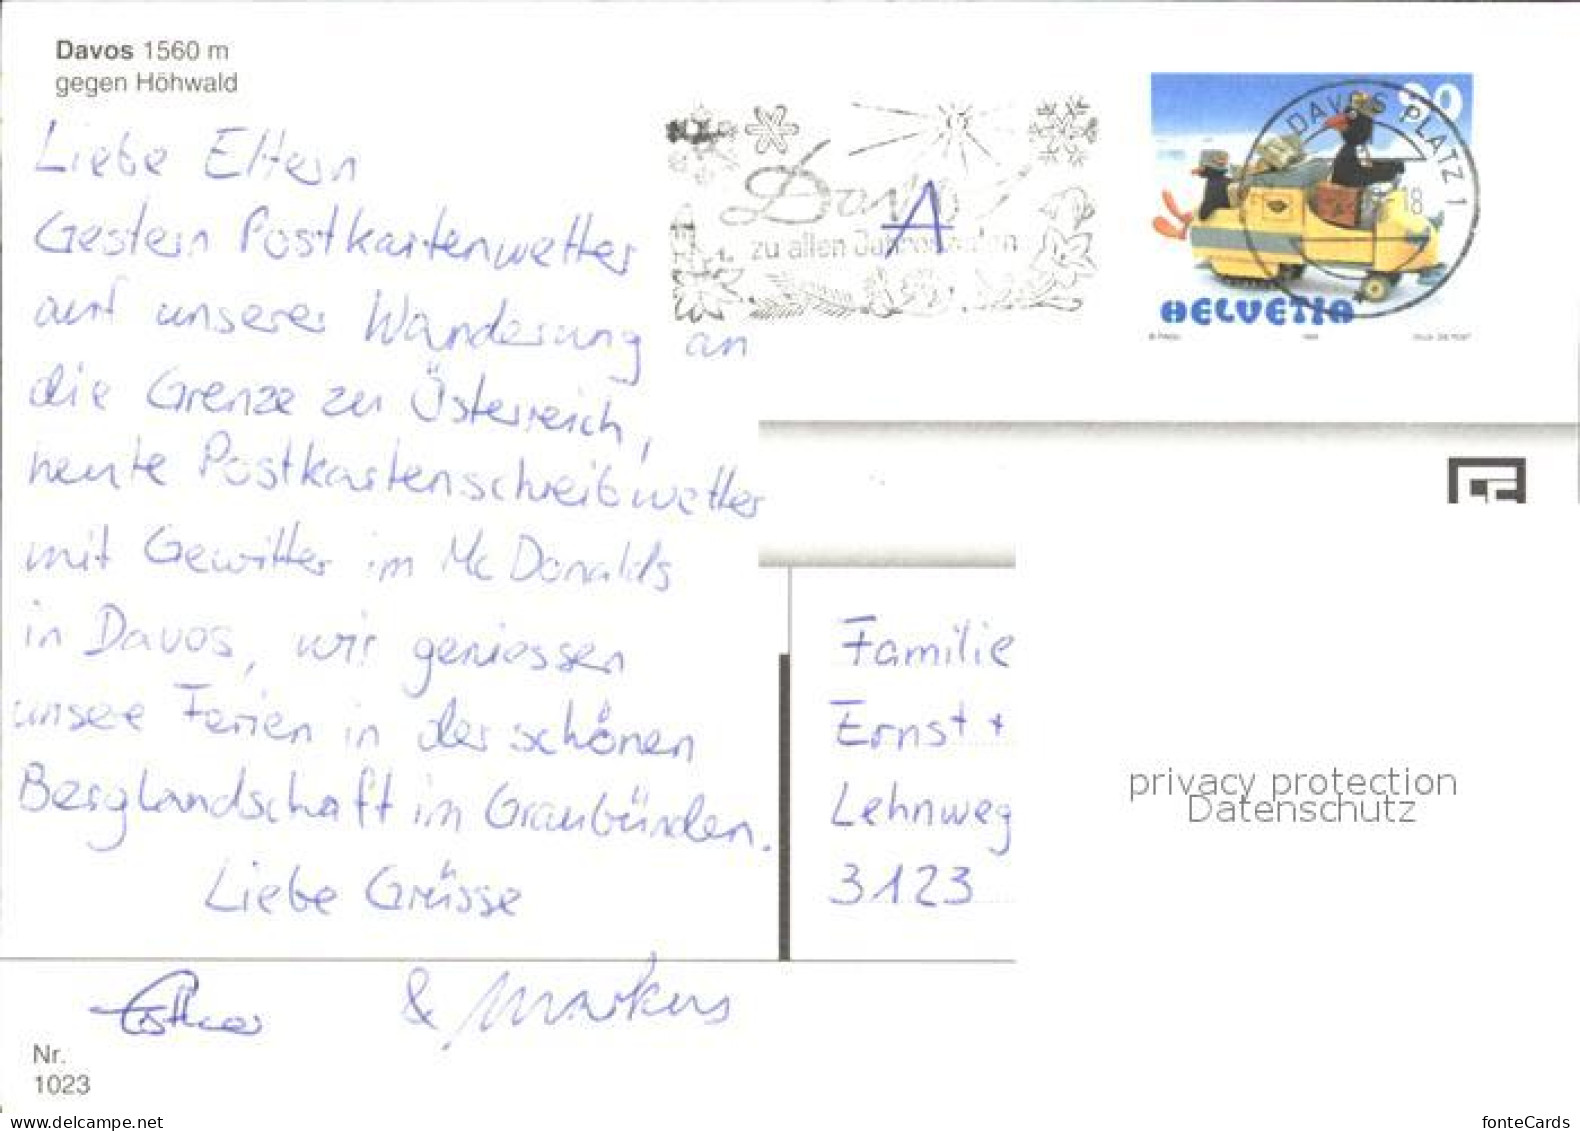 Davos 1560 m
gegen Höhwald
Liebe Eltern
Gestern Postkartenwetter
auf unserer Wanderung an
die Grenze zu Österreich,
heute Postkartenschreibwetter
mit Gewitter im Mc Donalds
in Davos, wir geniessen
unsere Ferien in der schönen
Berglandschaft im Graubünden.
Liebe Grüsse
Esther & Markus
Nr.
1023
Davos
zu allen Jahreszeiten
A
90
DAVOS PLATZ 1
18
HELVETIA
Familie
Ernst +
Lehnweg
3123
privacy protection
Datenschutz
www.delcampe.net
fonteCards